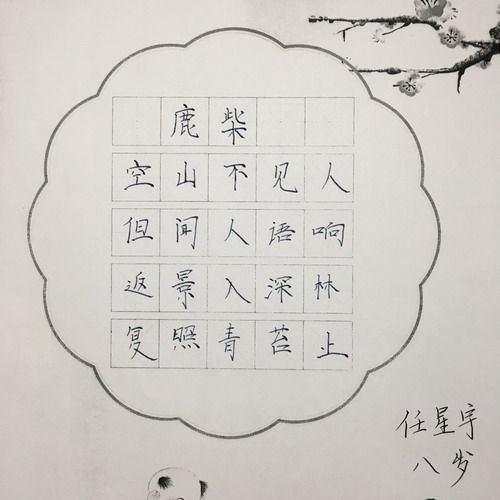 鹿柴
空山不见人
但闻人语响
返景入深林
复照青苔上
任星宇
八岁